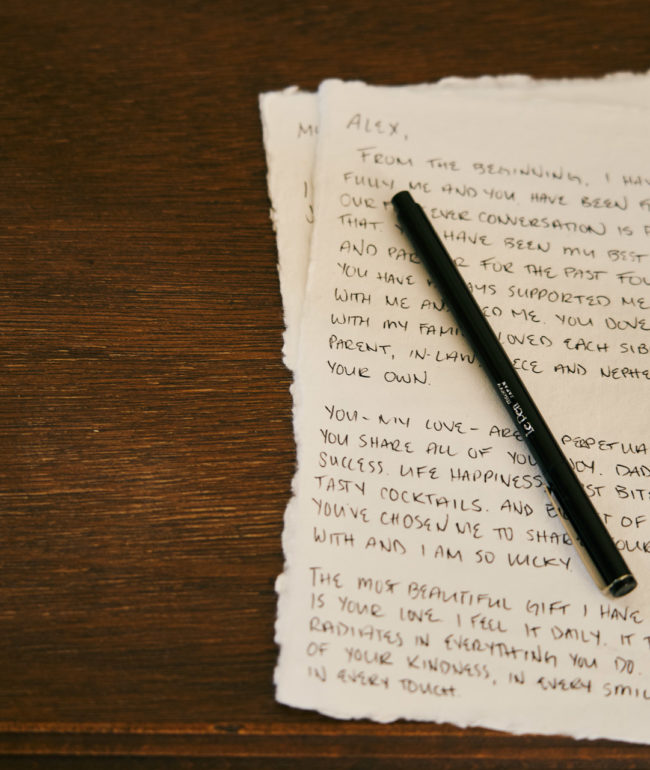 ALEX,
FROM THE BEGINNING, I HAV
FULLY ME AND YOU. HAVE BEEN
OUR EVER CONVERSATION IS
THAT. HAVE BEEN MY BEST
AND FOR THE PAST FOU
YOU HAVE SUPPORTED ME
WITH ME ME. YOU DOVE
WITH MY LOVED EACH SIB
PARENT, IN-LAW, AND NEPHE
YOUR OWN.
YOU- MY LOVE- ARE PERPETUA
YOU SHARE ALL OF JOY. DAD
SUCCESS. LIFE HAPPINESS. BIT
TASTY COCKTAILS. AND OF
YOU'VE CHOSEN ME TO SHAR YOUR
WITH AND I AM SO LUCKY.
THE MOST BEAUTIFUL GIFT I HAVE
IS YOUR LOVE. I FEEL IT DAILY. IT
RADIATES IN EVERYTHING YOU DO.
OF YOUR KINDNESS, IN EVERY SMIL
IN EVERY TOUCH.
Le Pen
JAPAN